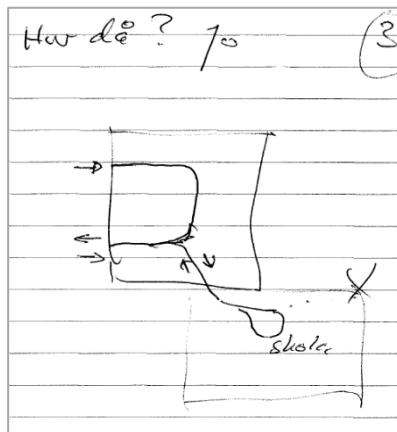 Hur då? Jo
3
skola